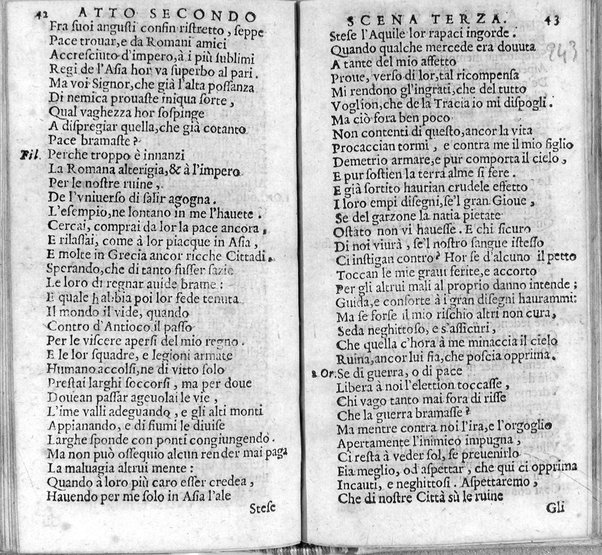 42 ATTO SECONDO
Fra suoi angusti confin ristretto, seppe
Pace trouar, e da Romani amici
Accresciuto d'impero, à i più sublimi
Regi de l'Asia hor va superbo al pari.
Ma voi Signor, che già l'alta possanza
Di nemica prouaste iniqua sorte,
Qual vaghezza hor sospinge
A dispregiar quella, che già cotanto
Pace bramaste?
Fil. Perche troppo è innanzi
La Romana alterigia, & à l'impero
Per le nostre ruine,
De l'vniuerso di salir agogna.
L'esempio, ne lontano in me l'hauete.
Cercai, comprai da lor la pace ancora,
E rilassai, come à lor piacque in Asia,
E molte in Grecia ancor ricche Cittadi.
Sperando, che di tanto fusser sazie
Le loro di regnar auide brame:
E quale habbia poi lor fede tenuta
Il mondo il vide, quando
Contro d'Antioco il passo
Per le viscere apersi del mio regno.
E le lor squadre, e legioni armate
Humano accolsi, ne di vitto solo
Prestai larghi soccorsi, ma per doue
Douean passar ageuolai le vie,
L'ime valli adeguando, e gli alti monti
Appianando, e di fiumi le diuise
Larghe sponde con ponti congiungendo.
Ma non può ossequio alcun render mai paga
La maluagia altrui mente:
Quando à loro più caro esser credea,
Hauendo per me solo in Asia l'ale
Stese
SCENA TERZA. 43
Stese l'Aquile lor rapaci ingorde.
Quando qualche mercede era douuta
A tante del mio affetto
Proue, verso di lor, tal ricompensa
Mi rendono gl'ingrati, che del tutto
Voglion, che de la Tracia io mi dispogli.
Ma ciò fora ben poco
Non contenti di questo, ancor la vita
Procaccian tormi, e contro me il mio figlio
Demetrio armare, e pur comporta il cielo,
E pur sostien la terra alme sì fere.
E già sortito haurian crudele effetto
I loro empi disegni, se'l gran Gioue,
Se del garzone la natia pietate
Ostato non vi hauesse. E chi sicuro
Di noi viurà, se'l nostro sangue istesso
Ci instigan contro? Hor se d'alcuno il petto
Toccan le mie graui ferite, e accorto
Per gli altrui mali al proprio danno intende;
Guida, e conforte à i gran disegni haurammi:
Ma se forse il mio rischio altri non cura,
Seda neghittoso, e s'assicuri,
Che quella c'hora à me minaccia il cielo
Ruina, ancor lui fia, che poscia opprima.
Or. Se di guerra, o di pace
Libera à noi l'elettion toccasse,
Chi vago tanto mai fora di risse
Che la guerra bramasse?
Ma mentre contra noi l'ira, e l'orgoglio
Apertamente l'inimico impugna,
Ci resta à veder sol, se preuenirlo
Fia meglio, od aspettar, che qui ci opprima
Incauti, e neghittosi. Aspettaremo,
Che di nostre Città sù le ruine
Gli
243